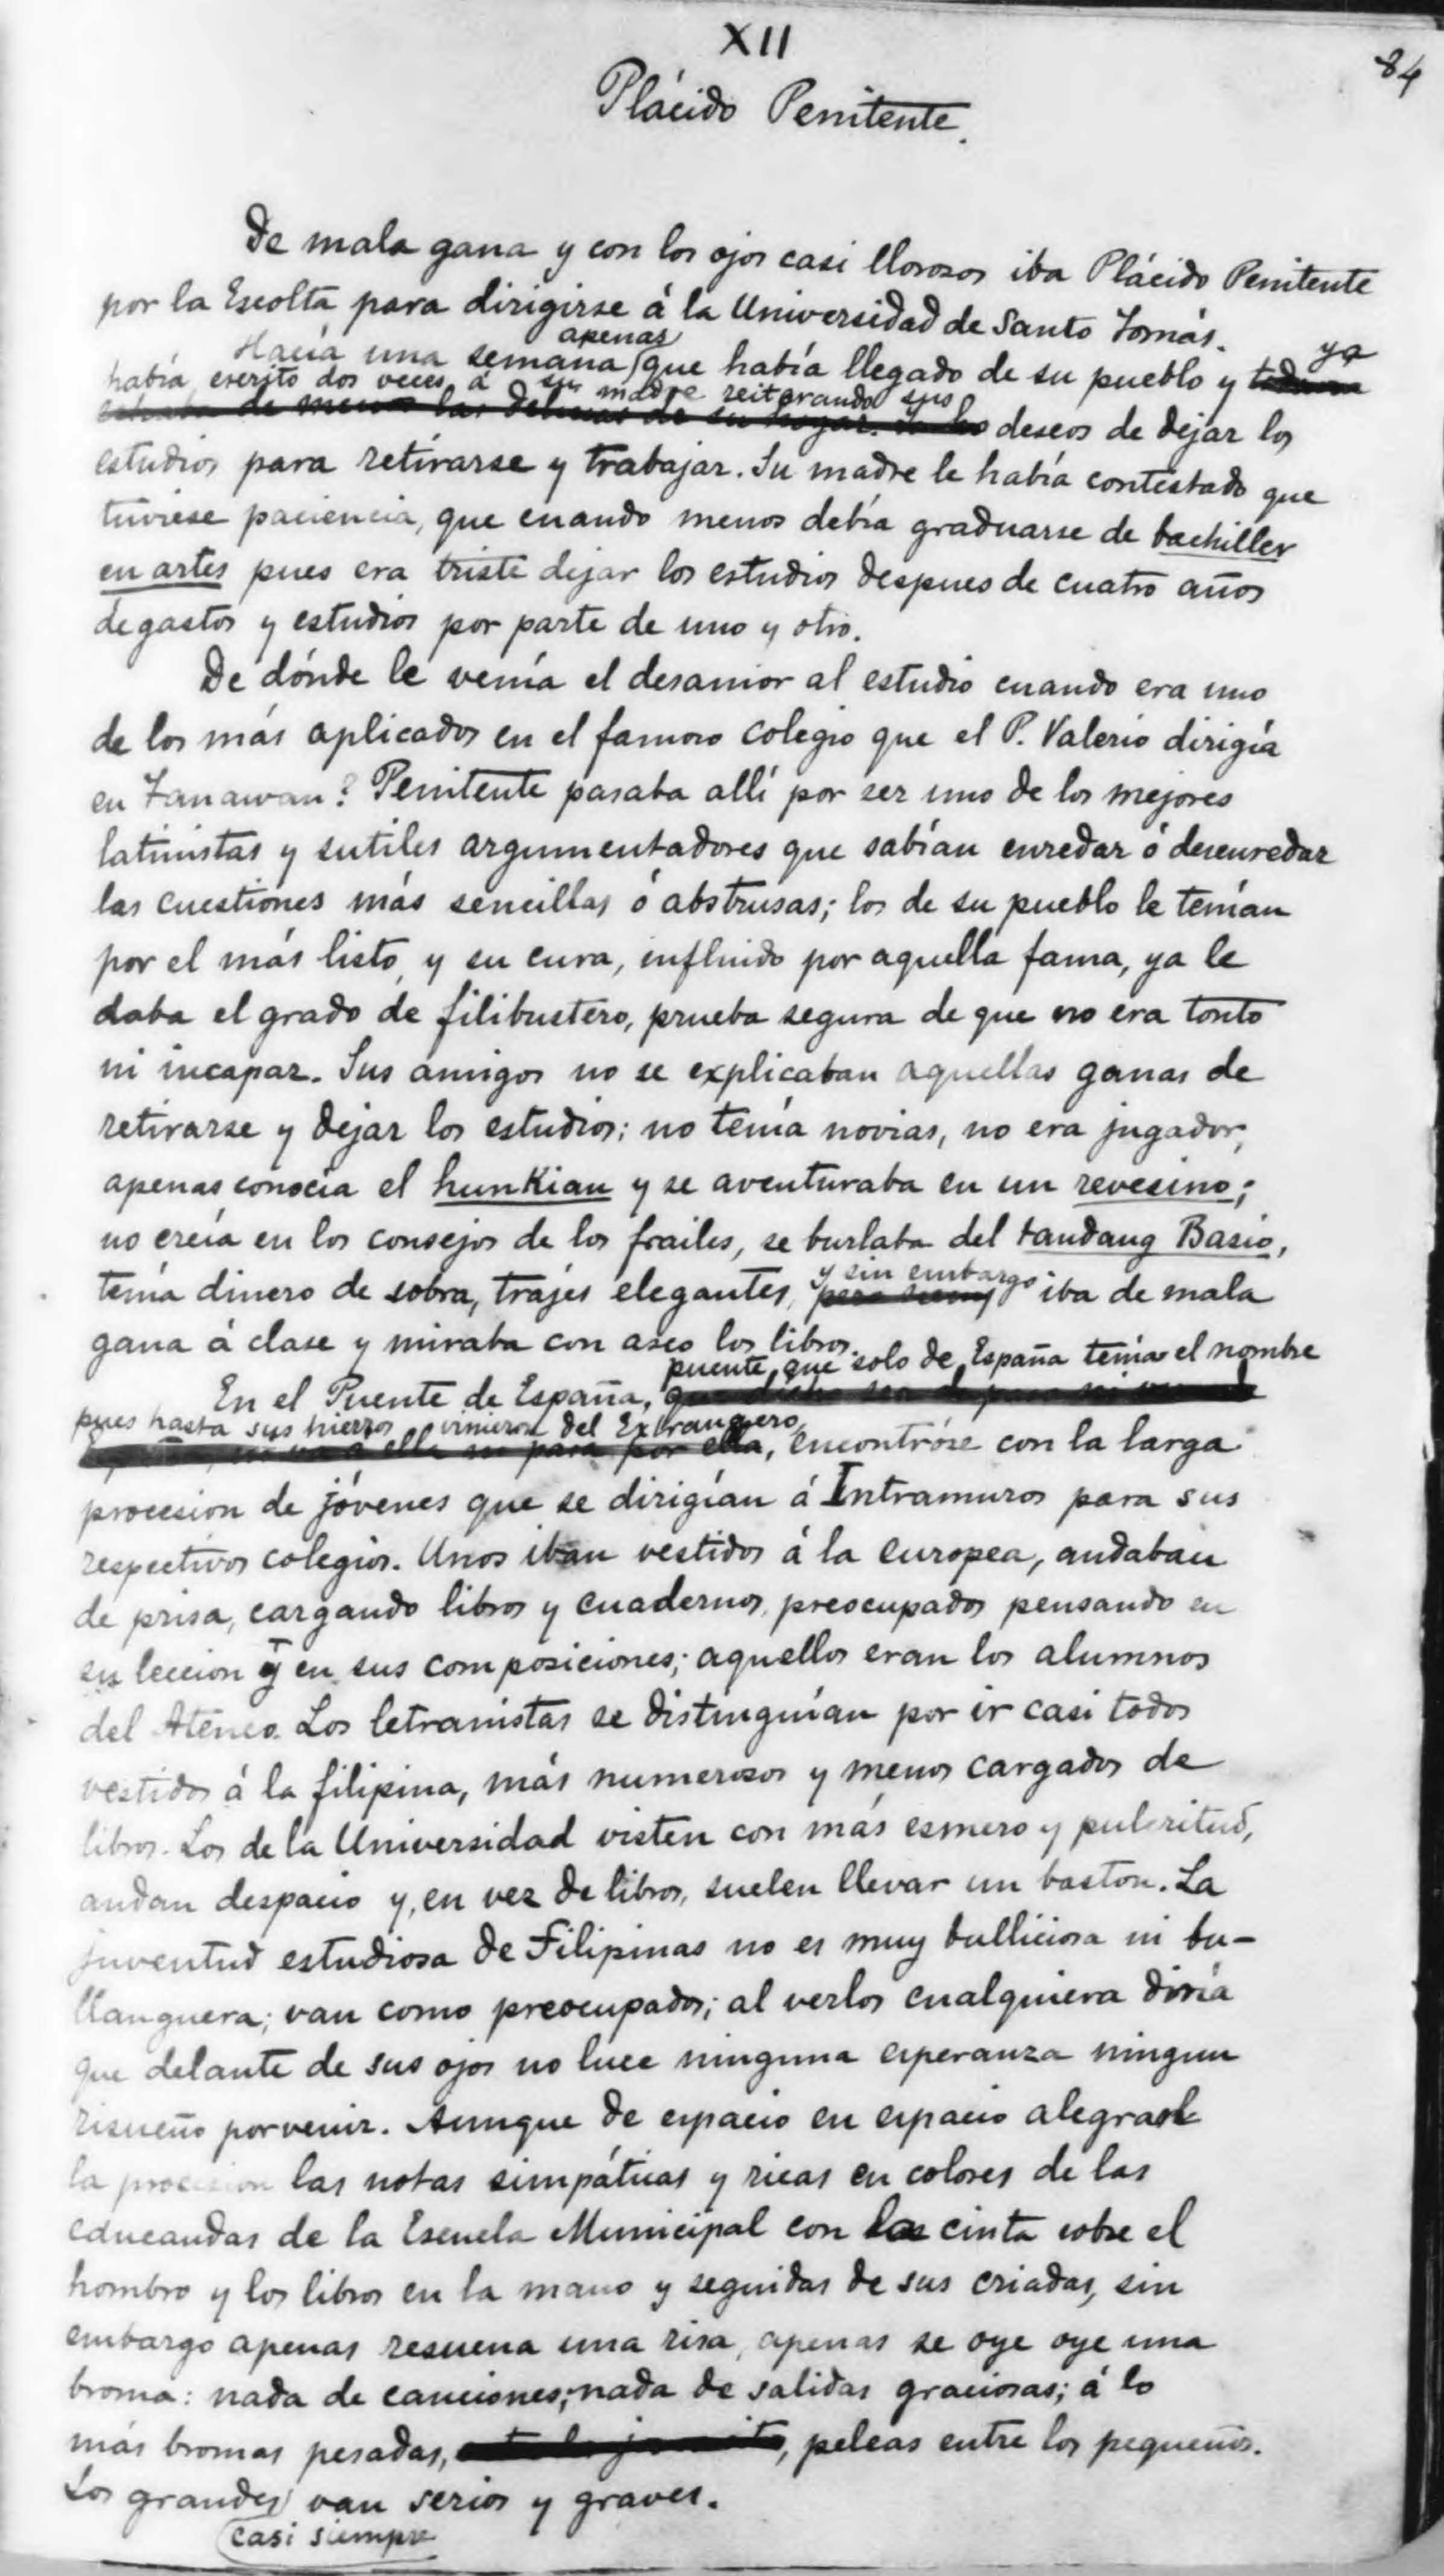 XII
84
Plácido Penitente.
De mala gana y con los ojos casi llorosos iba Plácido Penitente
por la Escolta para dirigirse á la Universidad de Santo Tomás.
apenas
Hacía una semana que había llegado de su pueblo y ya
había escrito dos veces á su madre reiterando sus
deseos de dejar los
estudios para retirarse y trabajar. Su madre le había contestado que
tuviese paciencia, que cuando menos debía graduarse de bachiller
en artes pues era triste dejar los estudios despues de cuatro años
de gastos y estudios por parte de uno y otro.
De dónde le venía el desamor al estudio cuando era uno
de los más aplicados en el famoso colegio que el P. Valerio dirigía
en Tanawan? Penitente pasaba allí por ser uno de los mejores
latinistas y sutiles argumentadores que sabían enredar ó desenredar
las cuestiones más sencillas ó abstrusas; los de su pueblo le tenían
por el más listo, y su cura, influido por aquella fama, ya le
daba el grado de filibustero, prueba segura de que no era tonto
ni incapaz. Sus amigos no se explicaban aquellas ganas de
retirarse y dejar los estudios: no tenía novias, no era jugador,
apenas conocía el hunkían y se aventuraba en un revesino;
no creía en los consejos de los frailes, se burlaba del tandang Basio,
tenía dinero de sobra, trajes elegantes, y sin embargo iba de mala
gana á clase y miraba con asco los libros.
puente que solo de España tenía el nombre
En el Puente de España,
pues hasta sus hierros vinieron del Extrangero,
encontróse con la larga
procesion de jóvenes que se dirigían á Intramuros para sus
respectivos colegios. Unos iban vestidos á la europea, andaban
de prisa, cargando libros y cuadernos, preocupados pensando en
su leccion y en sus composiciones; aquellos eran los alumnos
del Ateneo. Los letranistas se distinguían por ir casi todos
vestidos á la filipina, más numerosos y menos cargados de
libros. Los de la Universidad visten con más esmero y pulcritud,
andan despacio y, en vez de libros, suelen llevar un baston. La
juventud estudiosa de Filipinas no es muy bulliciosa ni bu-
llanguera; van como preocupados; al verlos cualquiera diría
que delante de sus ojos no luce ninguna esperanza ningun
risueño porvenir. Aunque de espacio en espacio alegran
la procesion las notas simpáticas y ricas en colores de las
educandas de la Escuela Municipal con la cinta sobre el
hombro y los libros en la mano y seguidas de sus criadas, sin
embargo apenas resuena una risa, apenas se oye oye una
broma: nada de canciones, nada de salidas graciosas; á lo
más bromas pesadas, peleas entre los pequeños.
Los grandes van serios y graves.
casi siempre